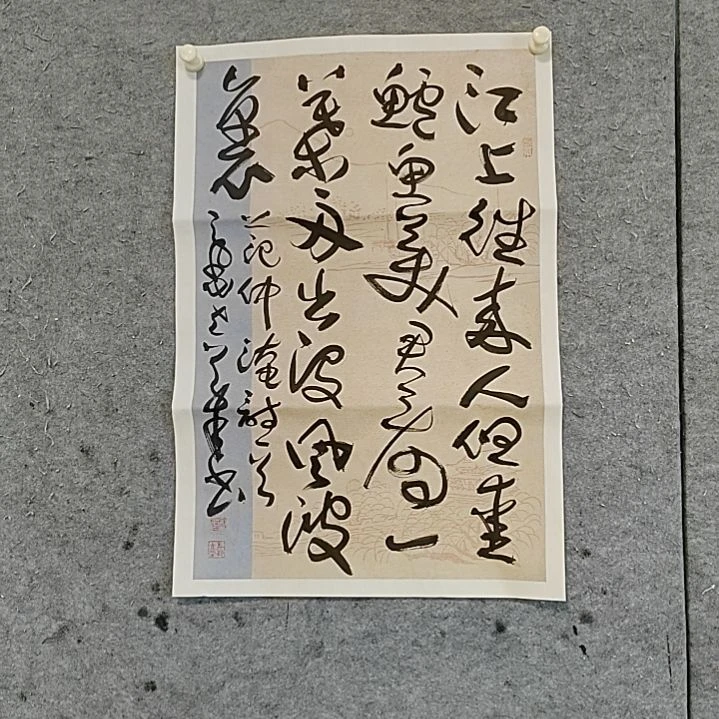 江上往來人但愛
鱸魚美君看一
葉舟出沒風波
裏
范仲淹詩一首
書